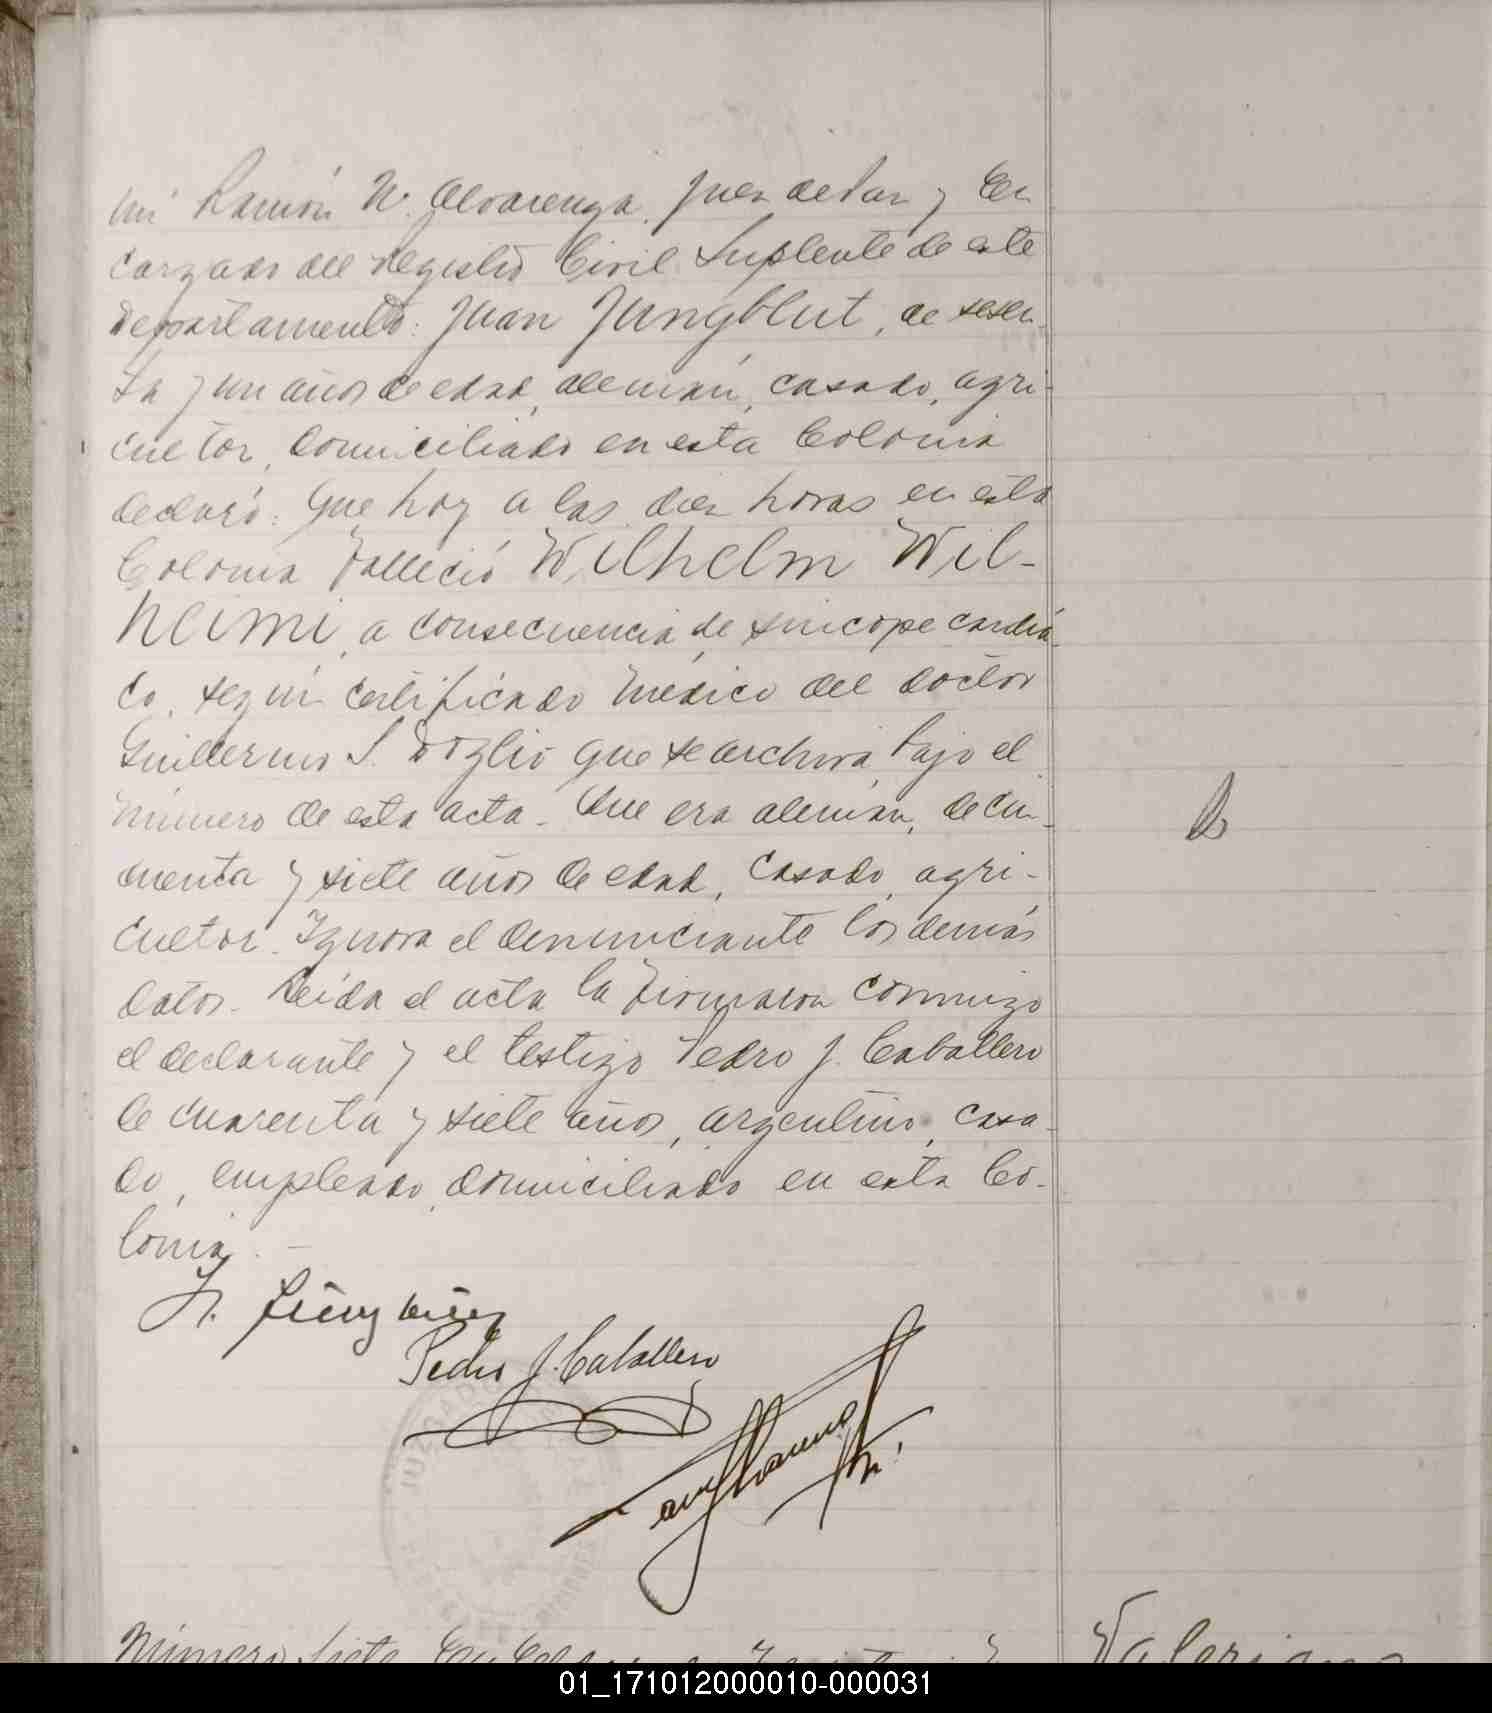 mí Ramón N. Alvarenga, Juez de Paz y En
cargado del Registro Civil Suplente de este
departamento: Juan Jungblut, de sesen-
ta y un años de edad, alemán, casado, agri-
cultor, domiciliado en esta Colonia
declaró: Que hoy a las diez horas en esta
Colonia falleció Wilhelm Wil-
helmi, a consecuencia de síncope cardía-
co, según certificado médico del doctor
Guillermo S. Doglio que se archiva bajo el
número de esta acta. Que era alemán, de cin-
cuenta y siete años de edad, casado, agri-
cultor. Ignora el denunciante los demás
datos. Leída el acta la firmaron conmigo
el declarante y el testigo Pedro J. Caballero
de cuarenta y siete años, argentino, casa-
do, empleado, domiciliado en esta Co-
lonia. -
Pedro J. Caballero
JUZGADO
Número Siete. En
Valeriano
01_171012000010-000031